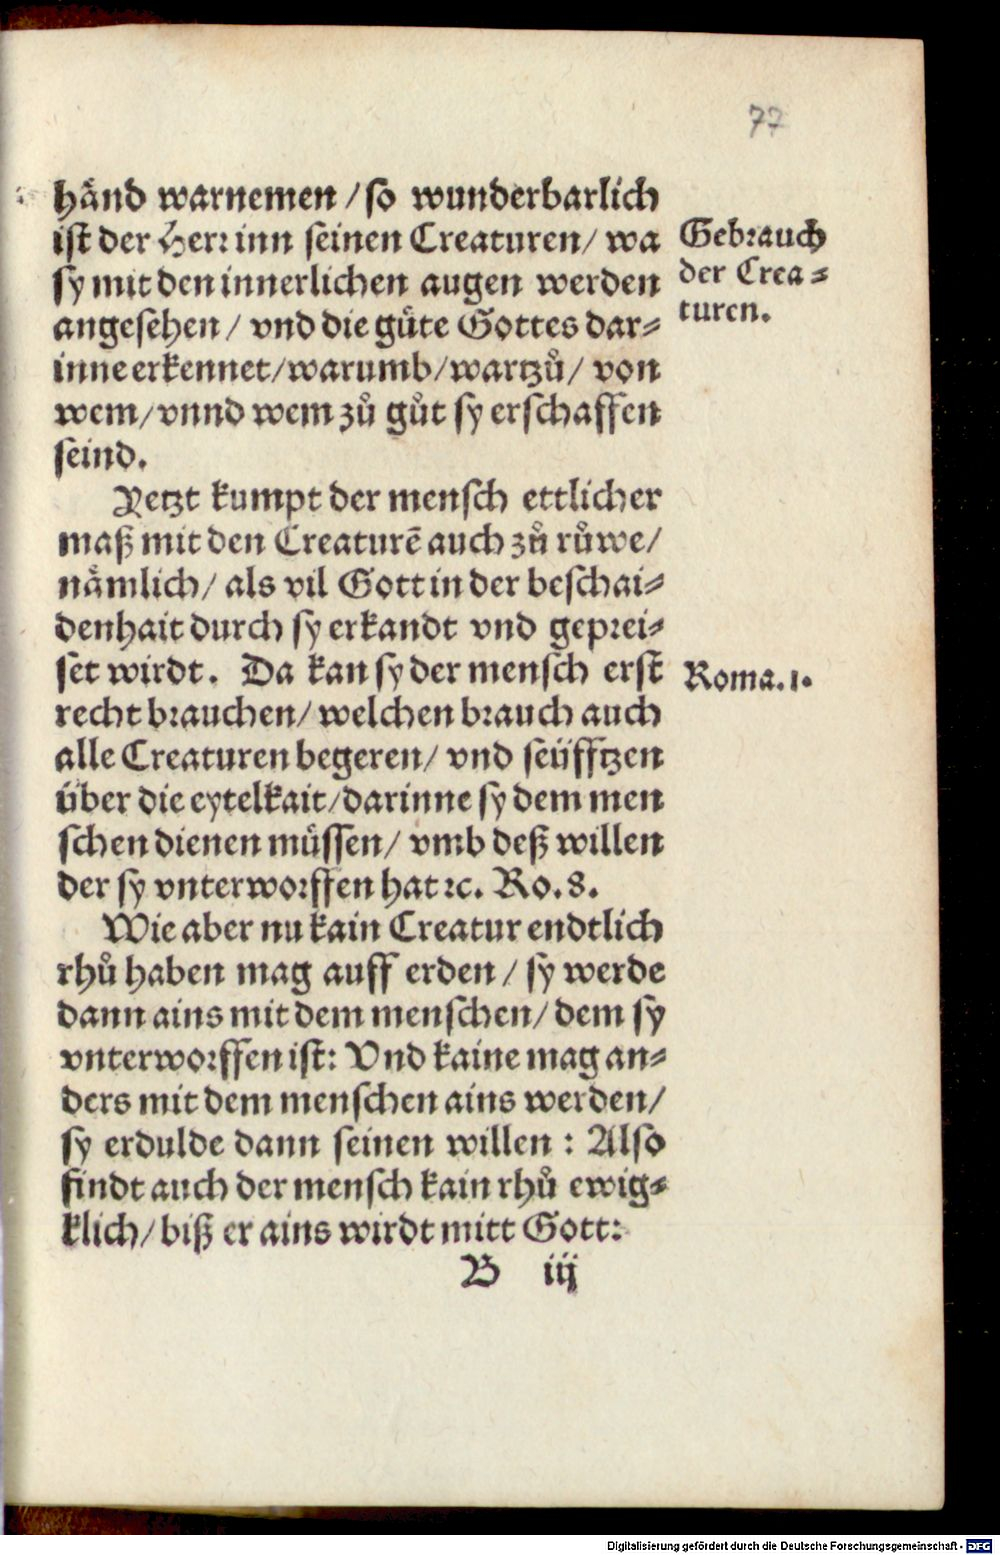 77
hånd warnemen / so wunderbarlich
ist der Herr inn seinen Creaturen / wa
sy mit den innerlichen augen werden
angesehen / vnd die gůte Gottes dar⸗
inne erkennet / warumb / wartzů / von
wem / vnnd wem zů gůt sy erschaffen
seind.
Gebrauch
der Crea⸗
turen.
Yetzt kumpt der mensch ettlicher
maß mit den Creaturē auch zů růwe /
nåmlich / als vil Gott in der beschai⸗
denhait durch sy erkandt vnd geprei⸗
set wirdt. Da kan sy der mensch erst
recht brauchen / welchen brauch auch
alle Creaturen begeren / vnd seüfftzen
über die eytelkait / darinne sy dem men
schen dienen müssen / vmb deß willen
der sy vnterworffen hat ꝛc. Ro. 8.
Roma. 1.
Wie aber nu kain Creatur endtlich
rhů haben mag auff erden / sy werde
dann ains mit dem menschen / dem sy
vnterworffen ist: Vnd kaine mag an⸗
ders mit dem menschen ains werden /
sy erdulde dann seinen willen : Also
findt auch der mensch kain rhů ewig⸗
klich / biß er ains wirdt mitt Gott:
B iij
Digitalisierung gefördert durch die Deutsche Forschungsgemeinschaft - DFG